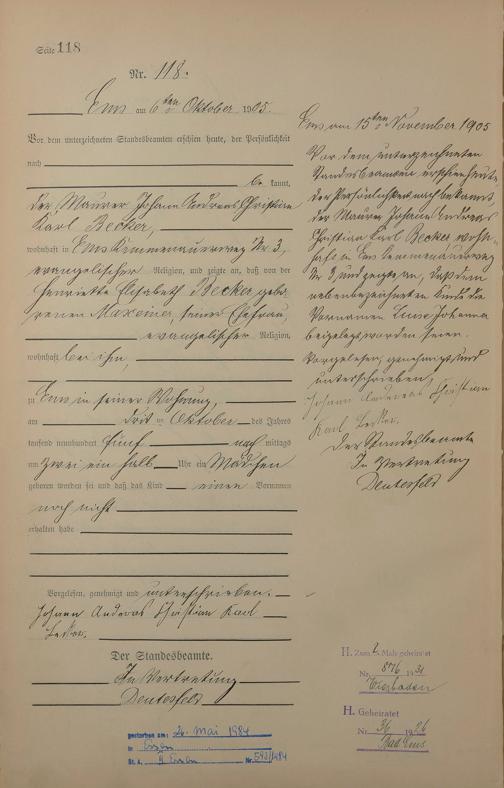 Seite 118
Nr. 118.
Ems am 6ten Oktober 1905.
Vor dem unterzeichneten Standesbeamten erschien heute, der Persönlichkeit
nach
be kannt,
der Maurer Johann Andreas Christian
Karl Becker,
wohnhaft in Ems Kemmenauerweg Nr. 3,
evangelischer Religion, und zeigte an, daß von der
Henriette Elisabeth Becker gebo-
renen Maxeiner, seiner Ehefrau,
evangelischer Religion,
wohnhaft bei ihm,
zu Ems in seiner Wohnung,
am drit ten Oktober des Jahres
tausend neunhundert fünf nach mittags
um zwei ein halb Uhr ein Mädchen
geboren worden sei und daß das Kind einen Vornamen
noch nicht
erhalten habe
Vorgelesen, genehmigt und unterschrieben.
Johann Andreas Christian Karl
Becker.
Der Standesbeamte.
In Vertretung
gestorben am: 26. Mai 1984
in
St. A. Nr.
Ems am 15ten November 1905
Vor dem unterzeichneten
Standesbeamten erschien heute
der Persönlichkeit nach bekannt
der Maurer Johann Andreas
Christian Karl Becker wohn-
haft in Ems Kemmenauerweg
Nr. 3, und zeigte an, daß dem
nebenbezeichneten Kinde die
Vornamen Luise Johanna
beigelegt worden seien.
Vorgelesen, genehmigt und
unterschrieben,
Johann Andreas Christian
Karl Becker.
Der Standesbeamte
In Vertretung
H. Zum 2. Mal geheiratet
Nr. 876 1931
Wiesbaden
H. Geheiratet
Nr. 36 1926
Bad Ems